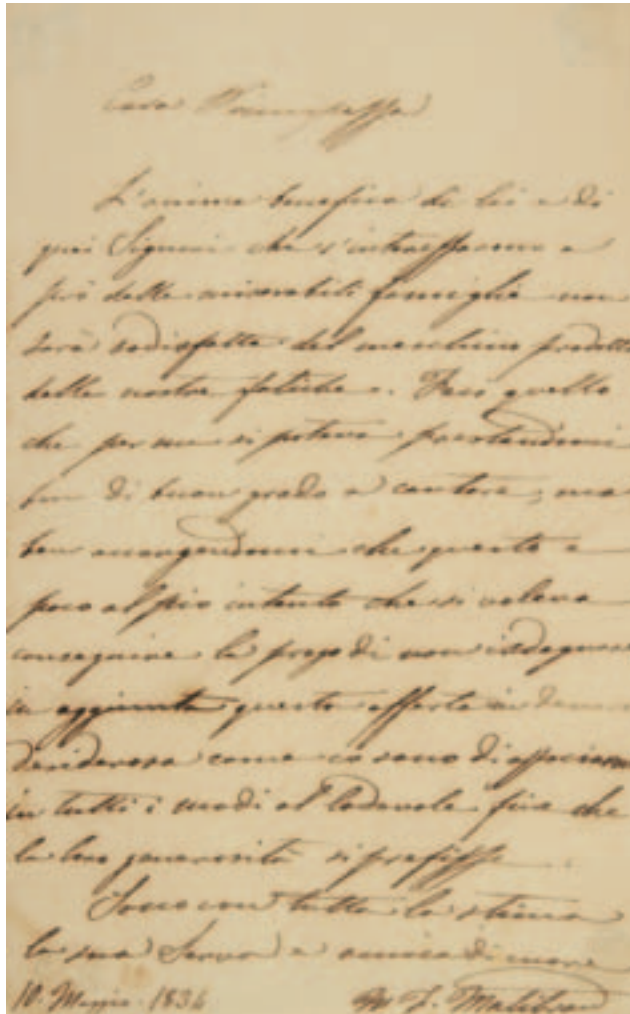 Cara Principessa
L'anima benefica di lei e di
quei Signori che s'intressarono a
prò delle miserabili famiglie non
sarà sodisfatta del meschino prodotto
delle nostre fatiche. Feci quello
che per me si poteva prestandomi
ben di buon grado a cantare, ma
ben accorgendomi che questo è
poco al pio intento che si voleva
conseguire la prego di non isdegnare
in aggiunta questa offerta in denaro
desiderosa come io sono di associarmi
in tutti i modi al lodevole fine che
la loro generosità si prefisse
Sono con tutta la stima
la sua Serva e amica di cuore
10. Maggio 1834 M. F. Malibran